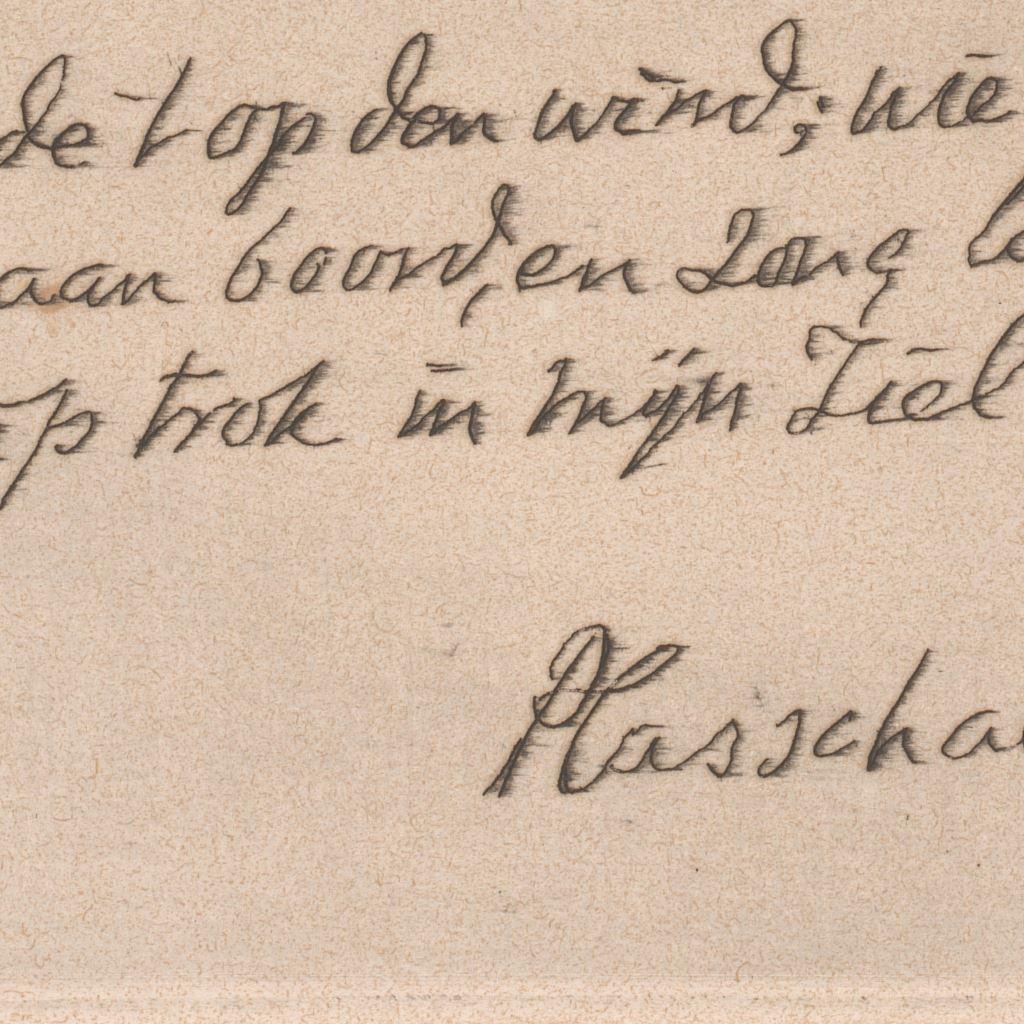 de 't op den wind; wie
aan boord, en zong
trok in mijn Ziel
Plasscha